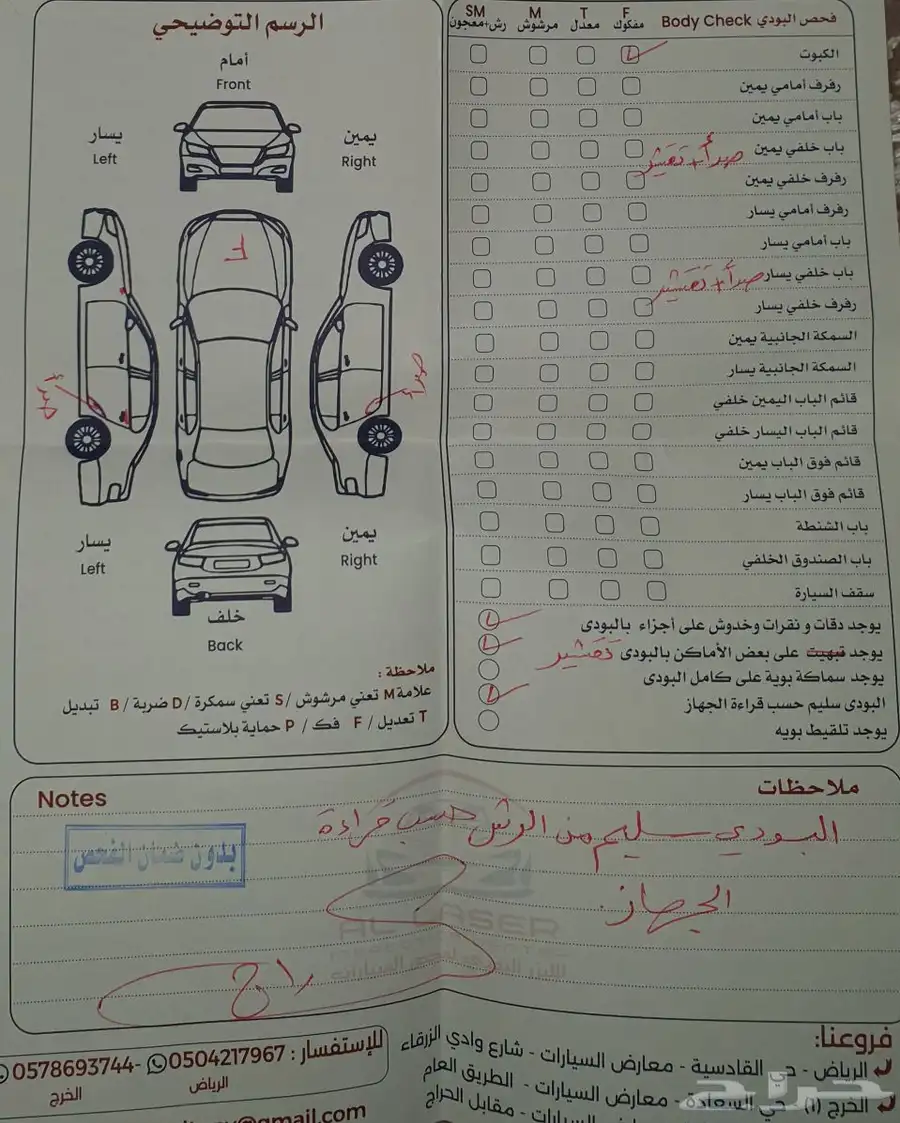 فحص البودي Body Check
F T M SM
مفكوك معدل مرشوش رش+معجون
الكبوت
رفرف امامي يمين
باب أمامي يمين
باب خلفي يمين صدأ + تقشير
رفرف خلفي يمين
رفرف أمامي يسار
باب أمامي يسار
باب خلفي يسار صدأ + تقشير
رفرف خلفي يسار
السمكة الجانبية يمين
السمكة الجانبية يسار
قائم الباب اليمين خلفي
قائم الباب اليسار خلفي
قائم فوق الباب يمين
قائم فوق الباب يسار
باب الشنطة
باب الصندوق الخلفي
سقف السيارة
يوجد دقات و نقرات وخدوش على أجزاء بالبودى
يوجد تبهيت على بعض الأماكن بالبودى تقشير
يوجد سماكة بوية على كامل البودى
البودى سليم حسب قراءة الجهاز
يوجد تلقيط بويه
الرسم التوضيحي
أمام
Front
يمين
Right
يسار
Left
F
صدأ
صدأ
يمين
Right
يسار
Left
خلف
Back
ملاحظة :
علامة M تعني مرشوش / S تعني سمكرة / D ضربة / B تبديل
T تعديل / F فك / P حماية بلاستيك
ملاحظات
Notes
البودي سليم من الرش حسب قراءة
الجهاز.
بدون ضمان الفحص
AL LASER
فروعنا:
الرياض - حي القادسية - معارض السيارات - شارع وادي الزرقاء
الخرج (١) - حي السعادة - معارض السيارات - الطريق العام
السيارات - مقابل الحراج
للإستفسار : 0504217967 - 0578693744
الرياض
الخرج
@gmail.com
حراج